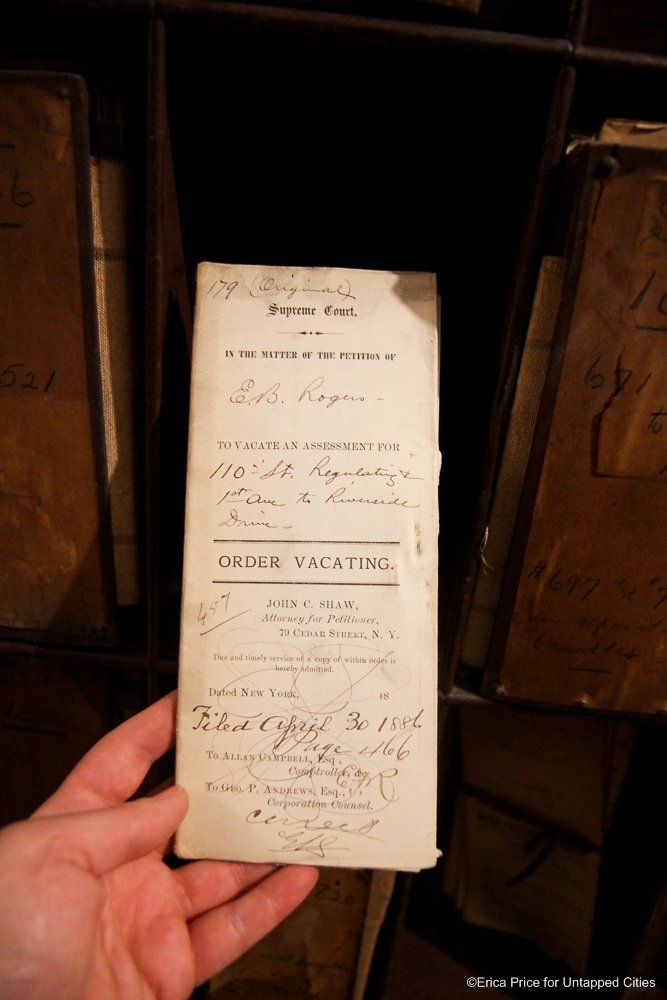 179 (Original)
Supreme Court.
IN THE MATTER OF THE PETITION OF
E.B. Rogers -
TO VACATE AN ASSESSMENT FOR
110" St. Regulating &
1st Ave to Riverside
Drive -
ORDER VACATING.
457
JOHN C. SHAW,
Attorney for Petitioner,
79 CEDAR STREET, N. Y.
Due and timely service of a copy of within order is
hereby admitted.
Dated NEW YORK, 18
Filed April 30 1886
Page 466
To ALLAN CAMPBELL, Esq.,
Comptroller, &c.
To GEO. P. ANDREWS, Esq.,
Corporation Counsel.
correct
521
671
to
#697
bundles
©Erica Price for Untapped Cities